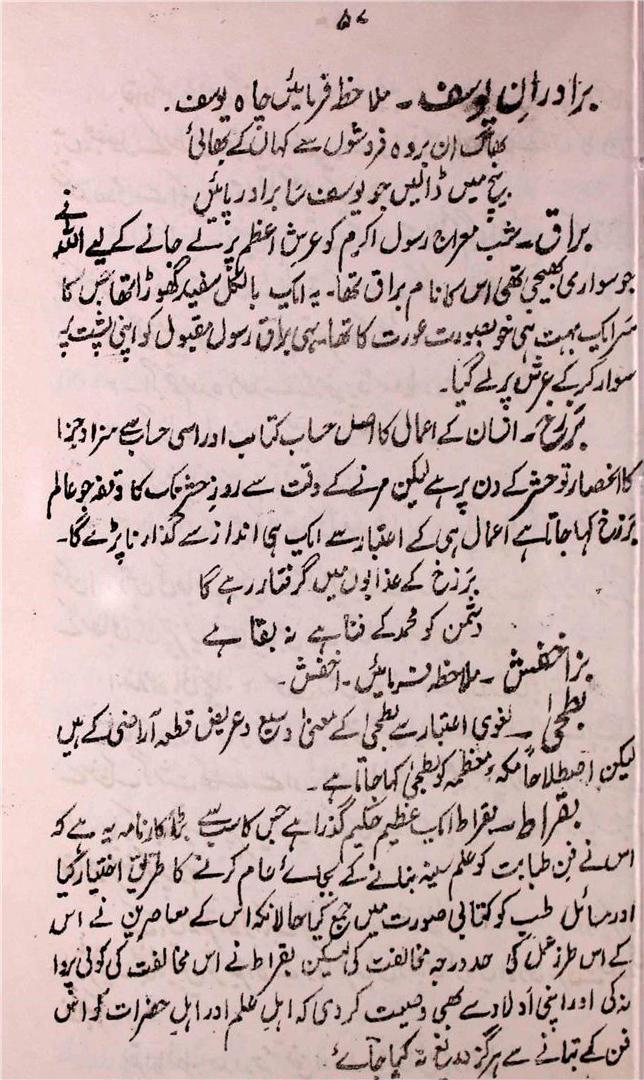 ۵۷
برادرانِ یوسف ۔ ملاحظہ فرمائیں چاہ یوسف ۔
بھاگ ان بردہ فروشوں سے کہاں کے بھائی
بیچ ہی ڈالیں جو یوسف سا برادر پائیں
براق ۔ شب معراج رسول اکرم کو عرش اعظم پر لے جانے کے لیے اللہ نے
جو سواری بھیجی تھی اس کا نام براق تھا۔ یہ ایک بالکل سفید گھوڑا تھا جس کا
سر ایک بہت ہی خوبصورت عورت کا تھا۔ یہی براق رسول مقبول کو اپنی پشت پہ
سوار کر کے عرش پر لے گیا۔
برزخ ۔ انسان کے اعمال کا اصل حساب کتاب اور اسی حساب سے سزا و جزا
کا انحصار تو حشر کے دن پر ہے لیکن مرنے کے وقت سے روز حشر تک کا وقفہ جو عالم
برزخ کہا جاتا ہے اعمال ہی کے اعتبار سے ایک ہی انداز سے گذارنا پڑے گا۔
برزخ کے عذابوں میں گرفتار رہے گا
دشمن کو محمد کے فنا ہے نہ بقا ہے
بز اخفش ۔ ملاحظہ فرمائیں ۔ اخفش ۔
بطحیٰ ۔ لغوی اعتبار سے بطحیٰ کے معنیٰ وسیع و عریض قطعہ آراضی کے ہیں
لیکن اصطلاحاً مکہ معظمہ کو بطحیٰ کہا جاتا ہے ۔
بقراط ۔ بقراط ایک عظیم حکیم گذرا ہے جس کا سب سے بڑا کارنامہ یہ ہے کہ
اس نے فن طبابت کو علم سینہ بنانے کے بجائے عام کرنے کا طریق اختیار کیا
اور مسائل طب کو کتابی صورت میں جمع کیا حالانکہ اس کے معاصرین نے اس
کے اس طرز عمل کی حد درجہ مخالفت کی لیکن بقراط نے اس مخالفت کی کوئی پروا
نہ کی اور اپنی اولاد سے بھی وصیت کر دی کہ اہل علم اور اہل حضرات کو اس
فن کے بتانے سے ہرگز دریغ نہ کیا جائے ۔